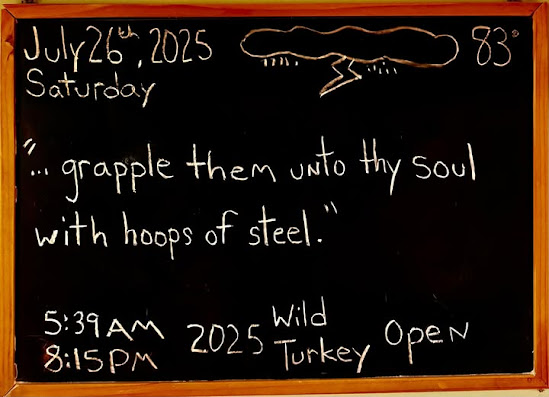 July 26th, 2025 83°
Saturday
"... grapple them unto thy soul
with hoops of steel."
5:39 AM
8:15 PM
2025 Wild Turkey Open